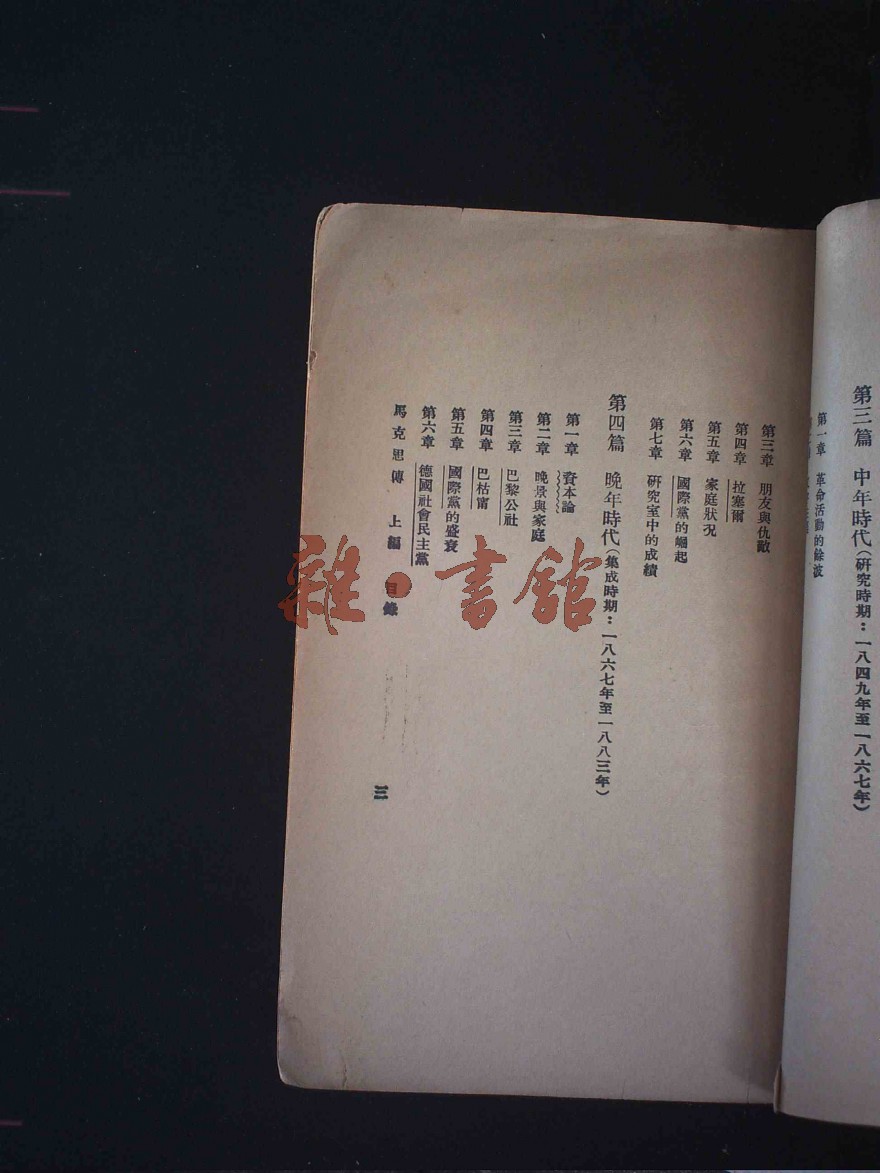 第三篇 中年時代（研究時期：一八四九年至一八六七年）
第一章 革命活動的餘波
第三章 朋友與仇敵
第四章 拉塞爾
第五章 家庭狀况
第六章 國際黨的崛起
第七章 研究室中的成績
第四篇 晚年時代（集成時期：一八六七年至一八八三年）
第一章 資本論
第二章 晚景與家庭
第三章 巴黎公社
第四章 巴枯甯
第五章 國際黨的盛衰
第六章 德國社會民主黨
馬克思傳 上編 目錄
三
雜·書館